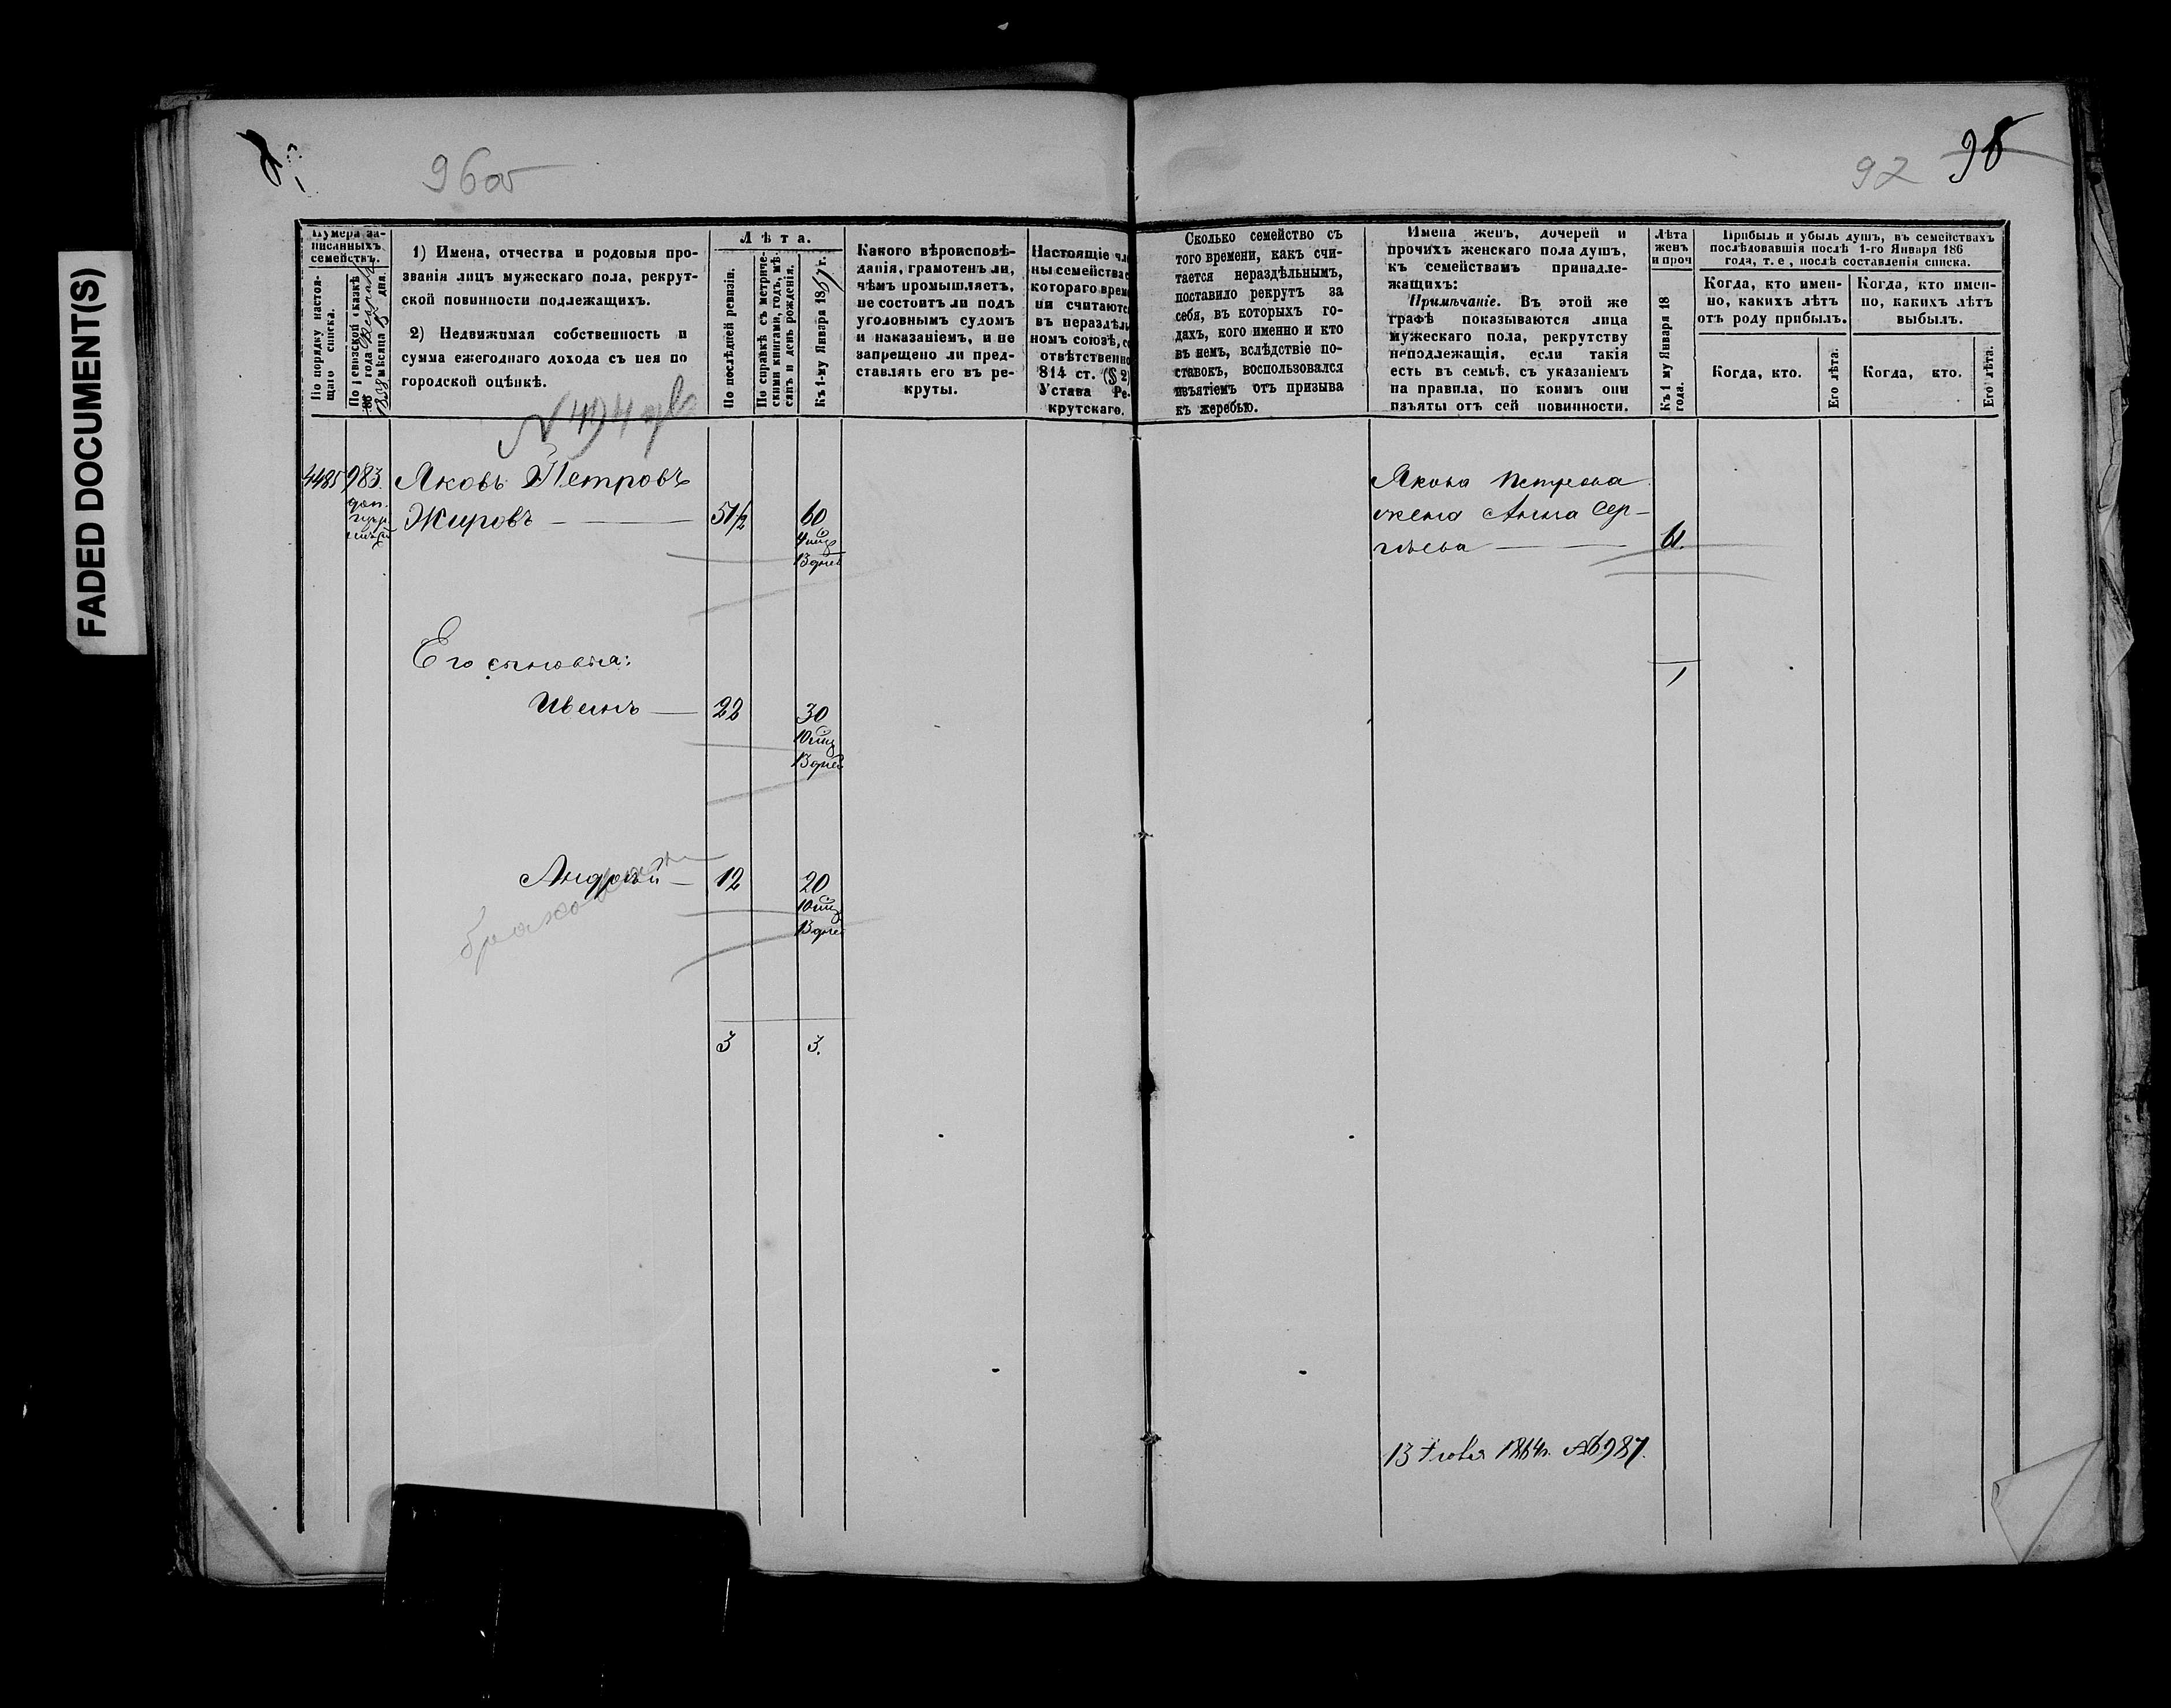 FADED DOCUMENT(S)
960об
92 98
Нумера за-
писанныхъ
семействъ.
По порядку настоя-
щаго списка.
По ревизской сказкѣ
185 года Февраля
8 мѣсяца дня.
1) Имена, отчества и родовыя про-
званія лицъ мужескаго пола, рекрут-
ской повинности подлежащихъ.
2) Недвижимая собственность и
сумма ежегоднаго дохода съ нея по
городской оцѣнкѣ.
Лѣта.
По послѣдней ревизіи.
По справкѣ съ метриче-
скими книгами, годъ, мѣ-
сяцъ и день рожденія.
Къ 1-му Января 1867 г.
Какого вѣроисповѣ-
данія, грамотенъ ли,
чѣмъ промышляетъ,
не состоитъ ли подъ
уголовнымъ судомъ
и наказаніемъ, и не
запрещено ли пред-
ставлять его въ ре-
круты.
Настоящіе чле
ны семейства с
котораго време
ни считаютс
въ нераздѣль
номъ союзѣ, со
отвѣтственно
814 ст. (§ 2)
Устава Ре-
крутскаго.
Сколько семейство съ
того времени, какъ счи-
тается нераздѣльнымъ,
поставило рекрутъ за
себя, въ которыхъ го-
дахъ, кого именно и кто
въ немъ, вслѣдствіе по-
ставокъ, воспользовался
изъятіемъ отъ призыва
къ жеребью.
Имена женъ, дочерей и
прочихъ женскаго пола душъ,
къ семействамъ принадле-
жащихъ:
Примѣчаніе. Въ этой же
графѣ показываются лица
мужескаго пола, рекрутству
неподлежащія, если такія
есть въ семьѣ, съ указаніемъ
на правила, по коимъ они
изъяты отъ сей повинности.
Лѣта
женъ
и проч
Къ 1 му Января 18
года.
Прибыль и убыль душъ, въ семействахъ
послѣдовавшія послѣ 1-го Января 186
года, т. е, послѣ составленія списка.
Когда, кто имен-
но, какихъ лѣтъ
отъ роду прибылъ.
Когда, кто имен-
но, какихъ лѣтъ
выбылъ.
Когда, кто.
Его лѣта.
Когда, кто.
Его лѣта.
N 494
4485 983 Яковъ Петровъ
доп.
Жировъ — 51½ 60
4 мѣс
13 дней
Якова Петрова
жена Анна Сер-
гѣева — 61.
1
Его сыновья:
Иванъ — 22 30
10 мѣс
13 дней
Андрей — 12 20
10 мѣс
13 дней
3 3.
13 Генвя 1864 г. №6987.